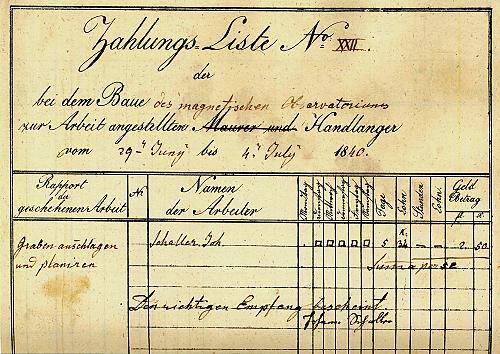 Zahlungs-Liste No. XXII.
der
bei dem Baue des magnetischen Observatoriums
zur Arbeit angestellten Maurer und Handlanger
vom 29n Juny bis 4n July 1840.
Rapport der geschehenen Arbeit
Nr.
Namen der Arbeiter
Montag
Dienstag
Mittwoch
Donnerstag
Freytag
Samstag
Tage
Lohn
Stunden
Lohn
Geld Betrag
fl. kr.
Graben ausschlagen Schaller Joh 5 – – 2. 50
und planiren
Suma per se
Den richtigen Empfang bescheint